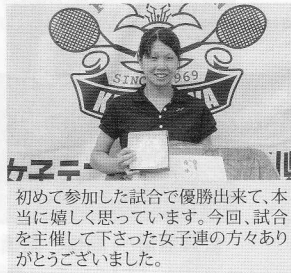 SINCE 1969
女子テ
初めて参加した試合で優勝出来て、本
当に嬉しく思っています。今回、試合
を主催して下さった女子連の方々あり
がとうございました。